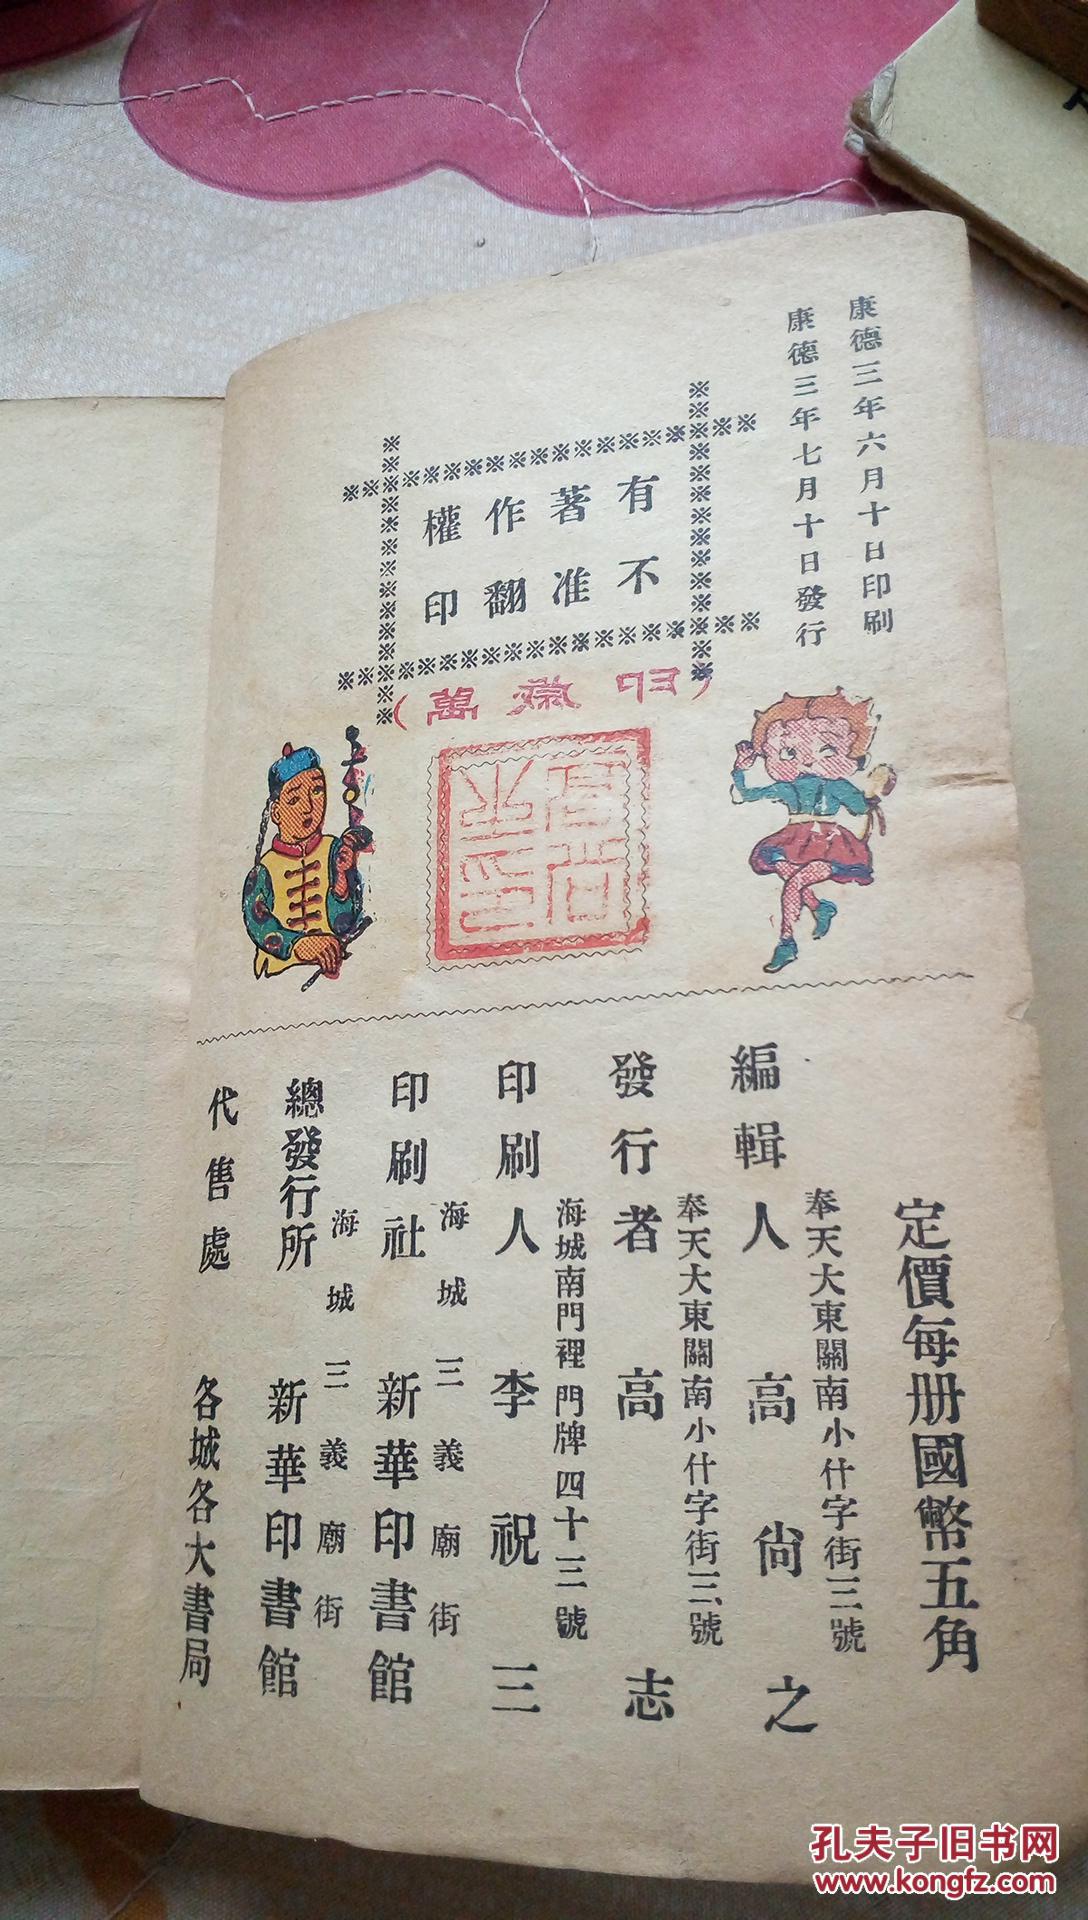 康德三年六月十日印刷
康德三年七月十日發行
有著作權
不准翻印
萬歲印
定價每册國幣五角
奉天大東關南小什字街三號
編輯人 高尙之
奉天大東關南小什字街三號
發行者 高志
海城南門裡門牌四十三號
印刷人 李祝三
海城三義廟街
印刷社 新華印書館
海城三義廟街
總發行所 新華印書館
代售處 各城各大書局
孔夫子旧书网
www.kongfz.com